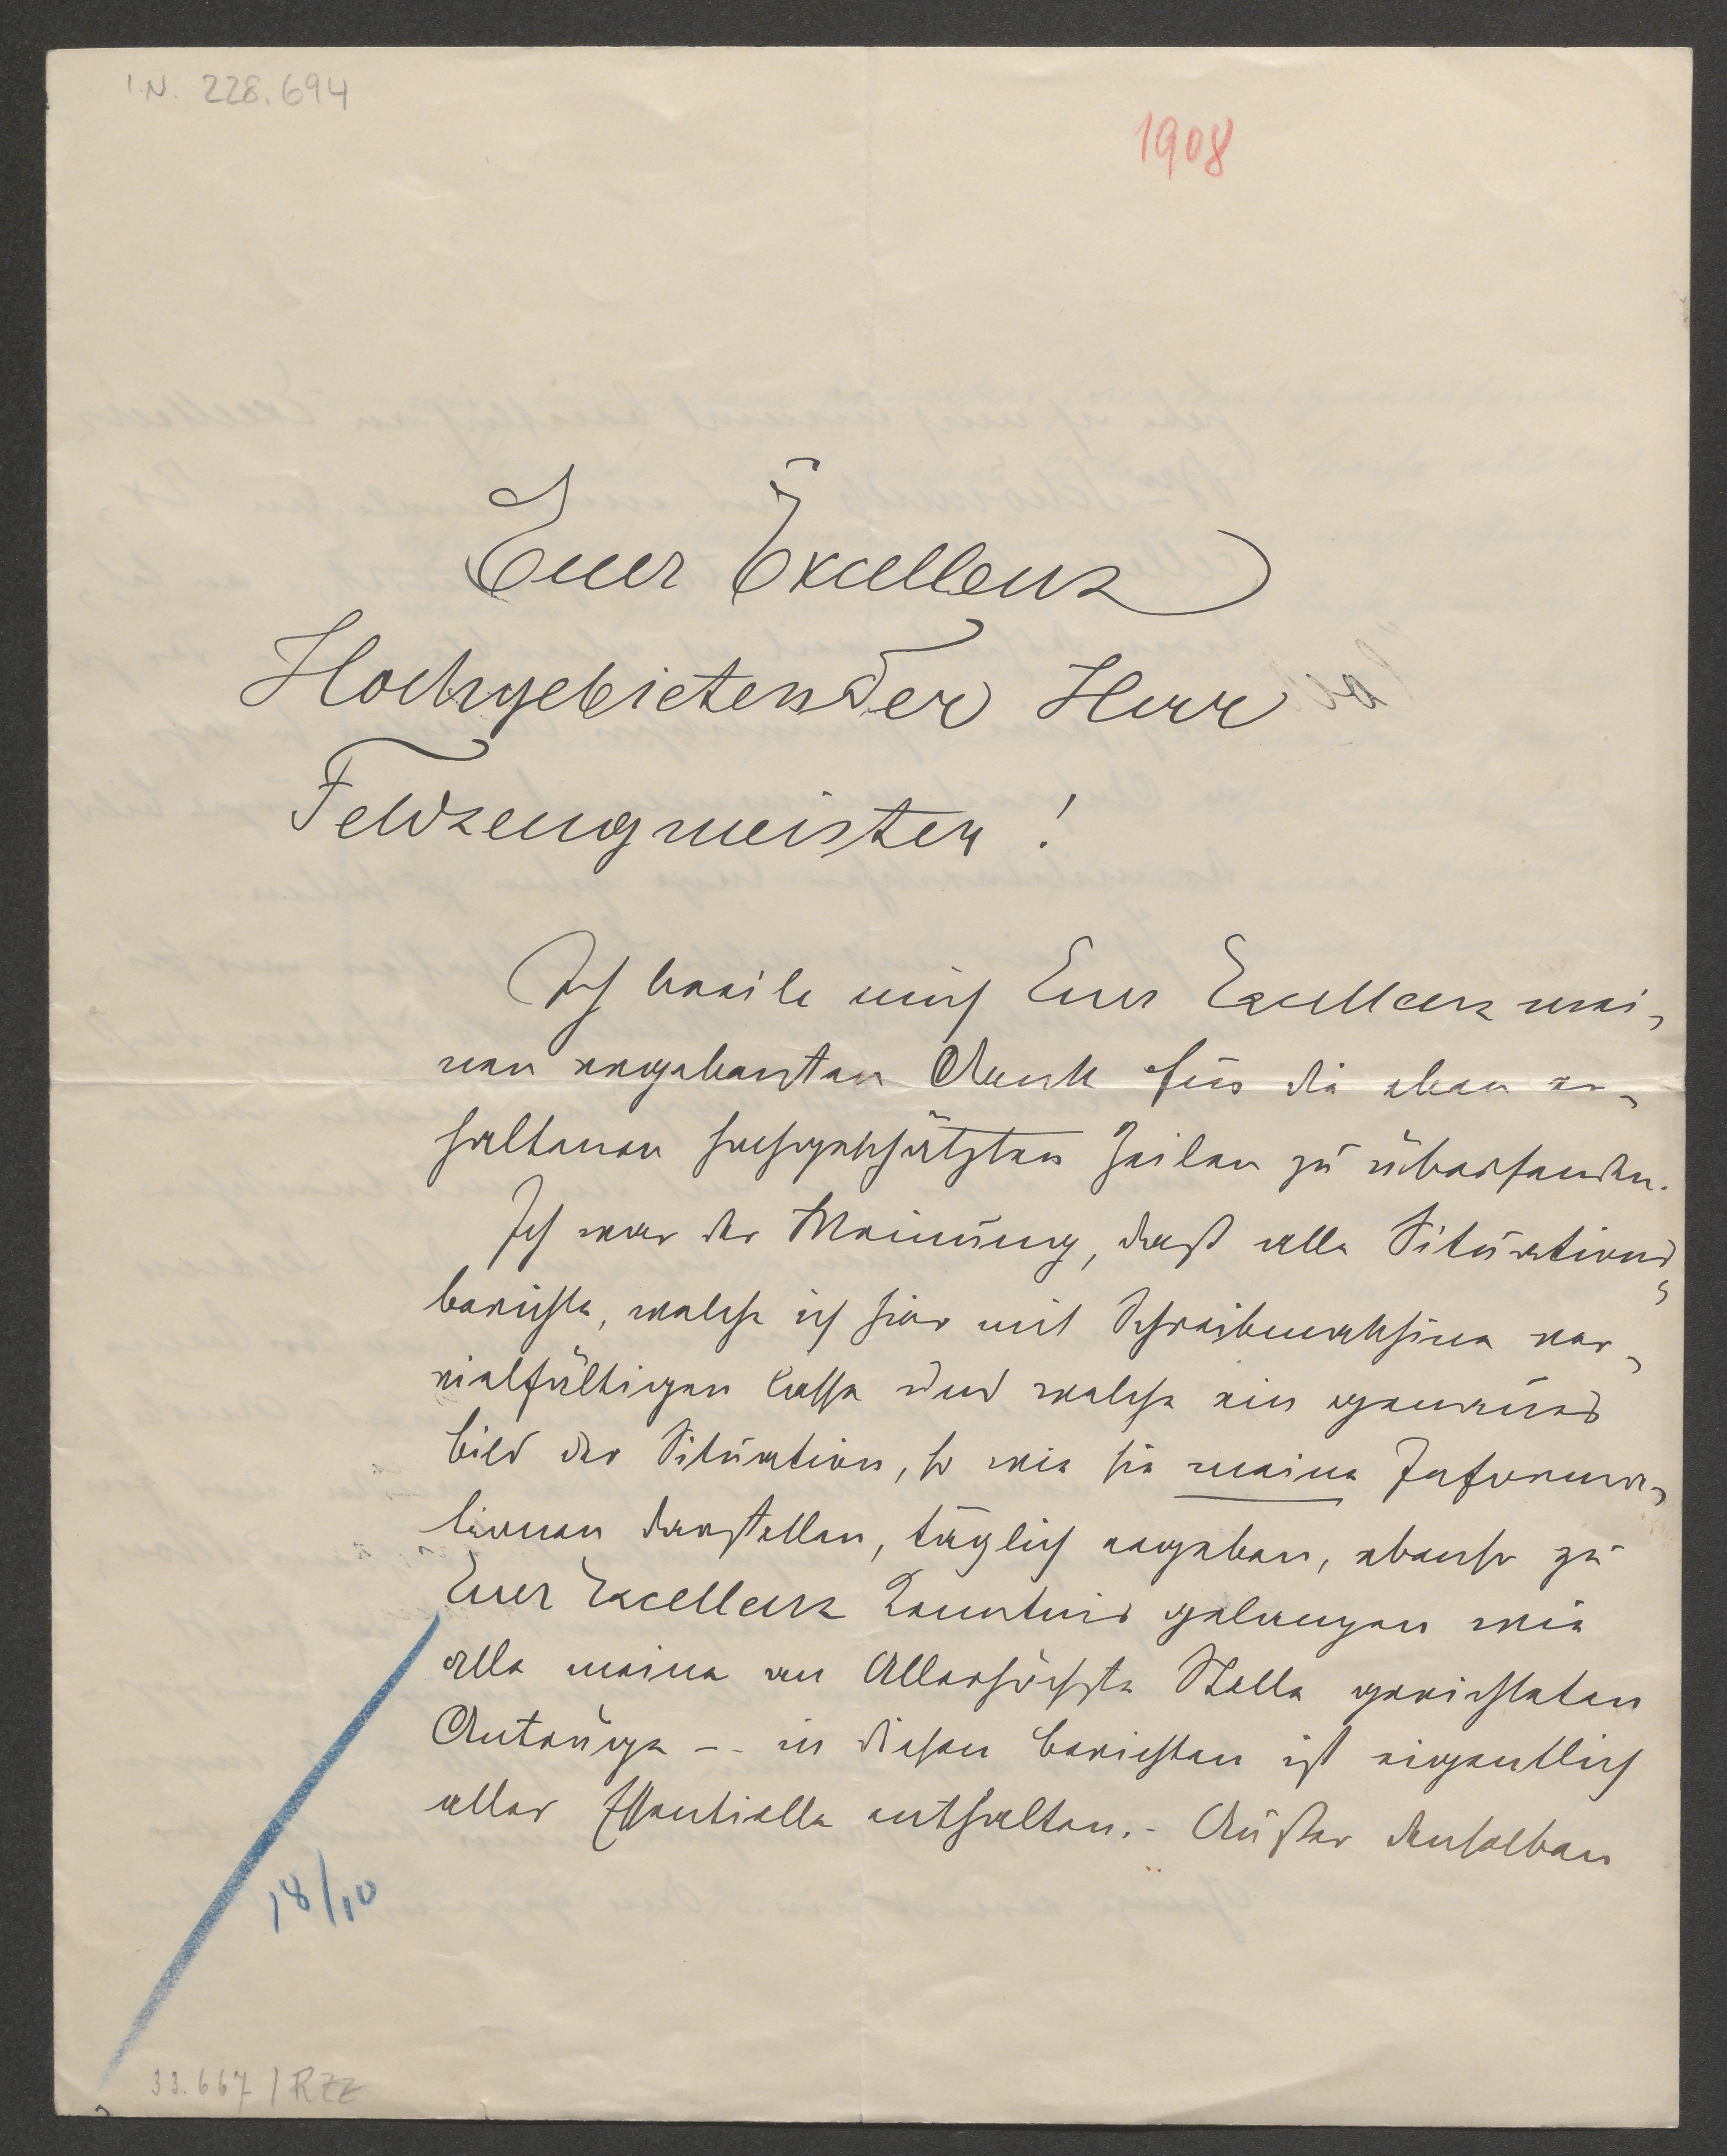 I.N. 228.694
1908
Euer Excellenz
Hochgebietender Herr
Feldzeugmeister!
Ich beeile mich Euer Excellenz mei-
nen ergebensten Dank für die eben er-
haltenen hochgeschätzten Zeilen zu übersenden.
Ich war der Meinung, daß alle Situations-
berichte, welche ich hier mit Schreibmaschine ver-
vielfältigen lasse und welche ein genaues
Bild der Situation, so wie sie meine Informa-
tionen darstellen, täglich ergeben, ebenso zu
Euer Excellenz Kenntnis gelangen wie
alle meine an Allerhöchste Stelle gerichteten
Anträge – in diesen Berichten ist eigentlich
alles Essentielle enthalten. – Außer denselben
18/10
33.667 / RZZ